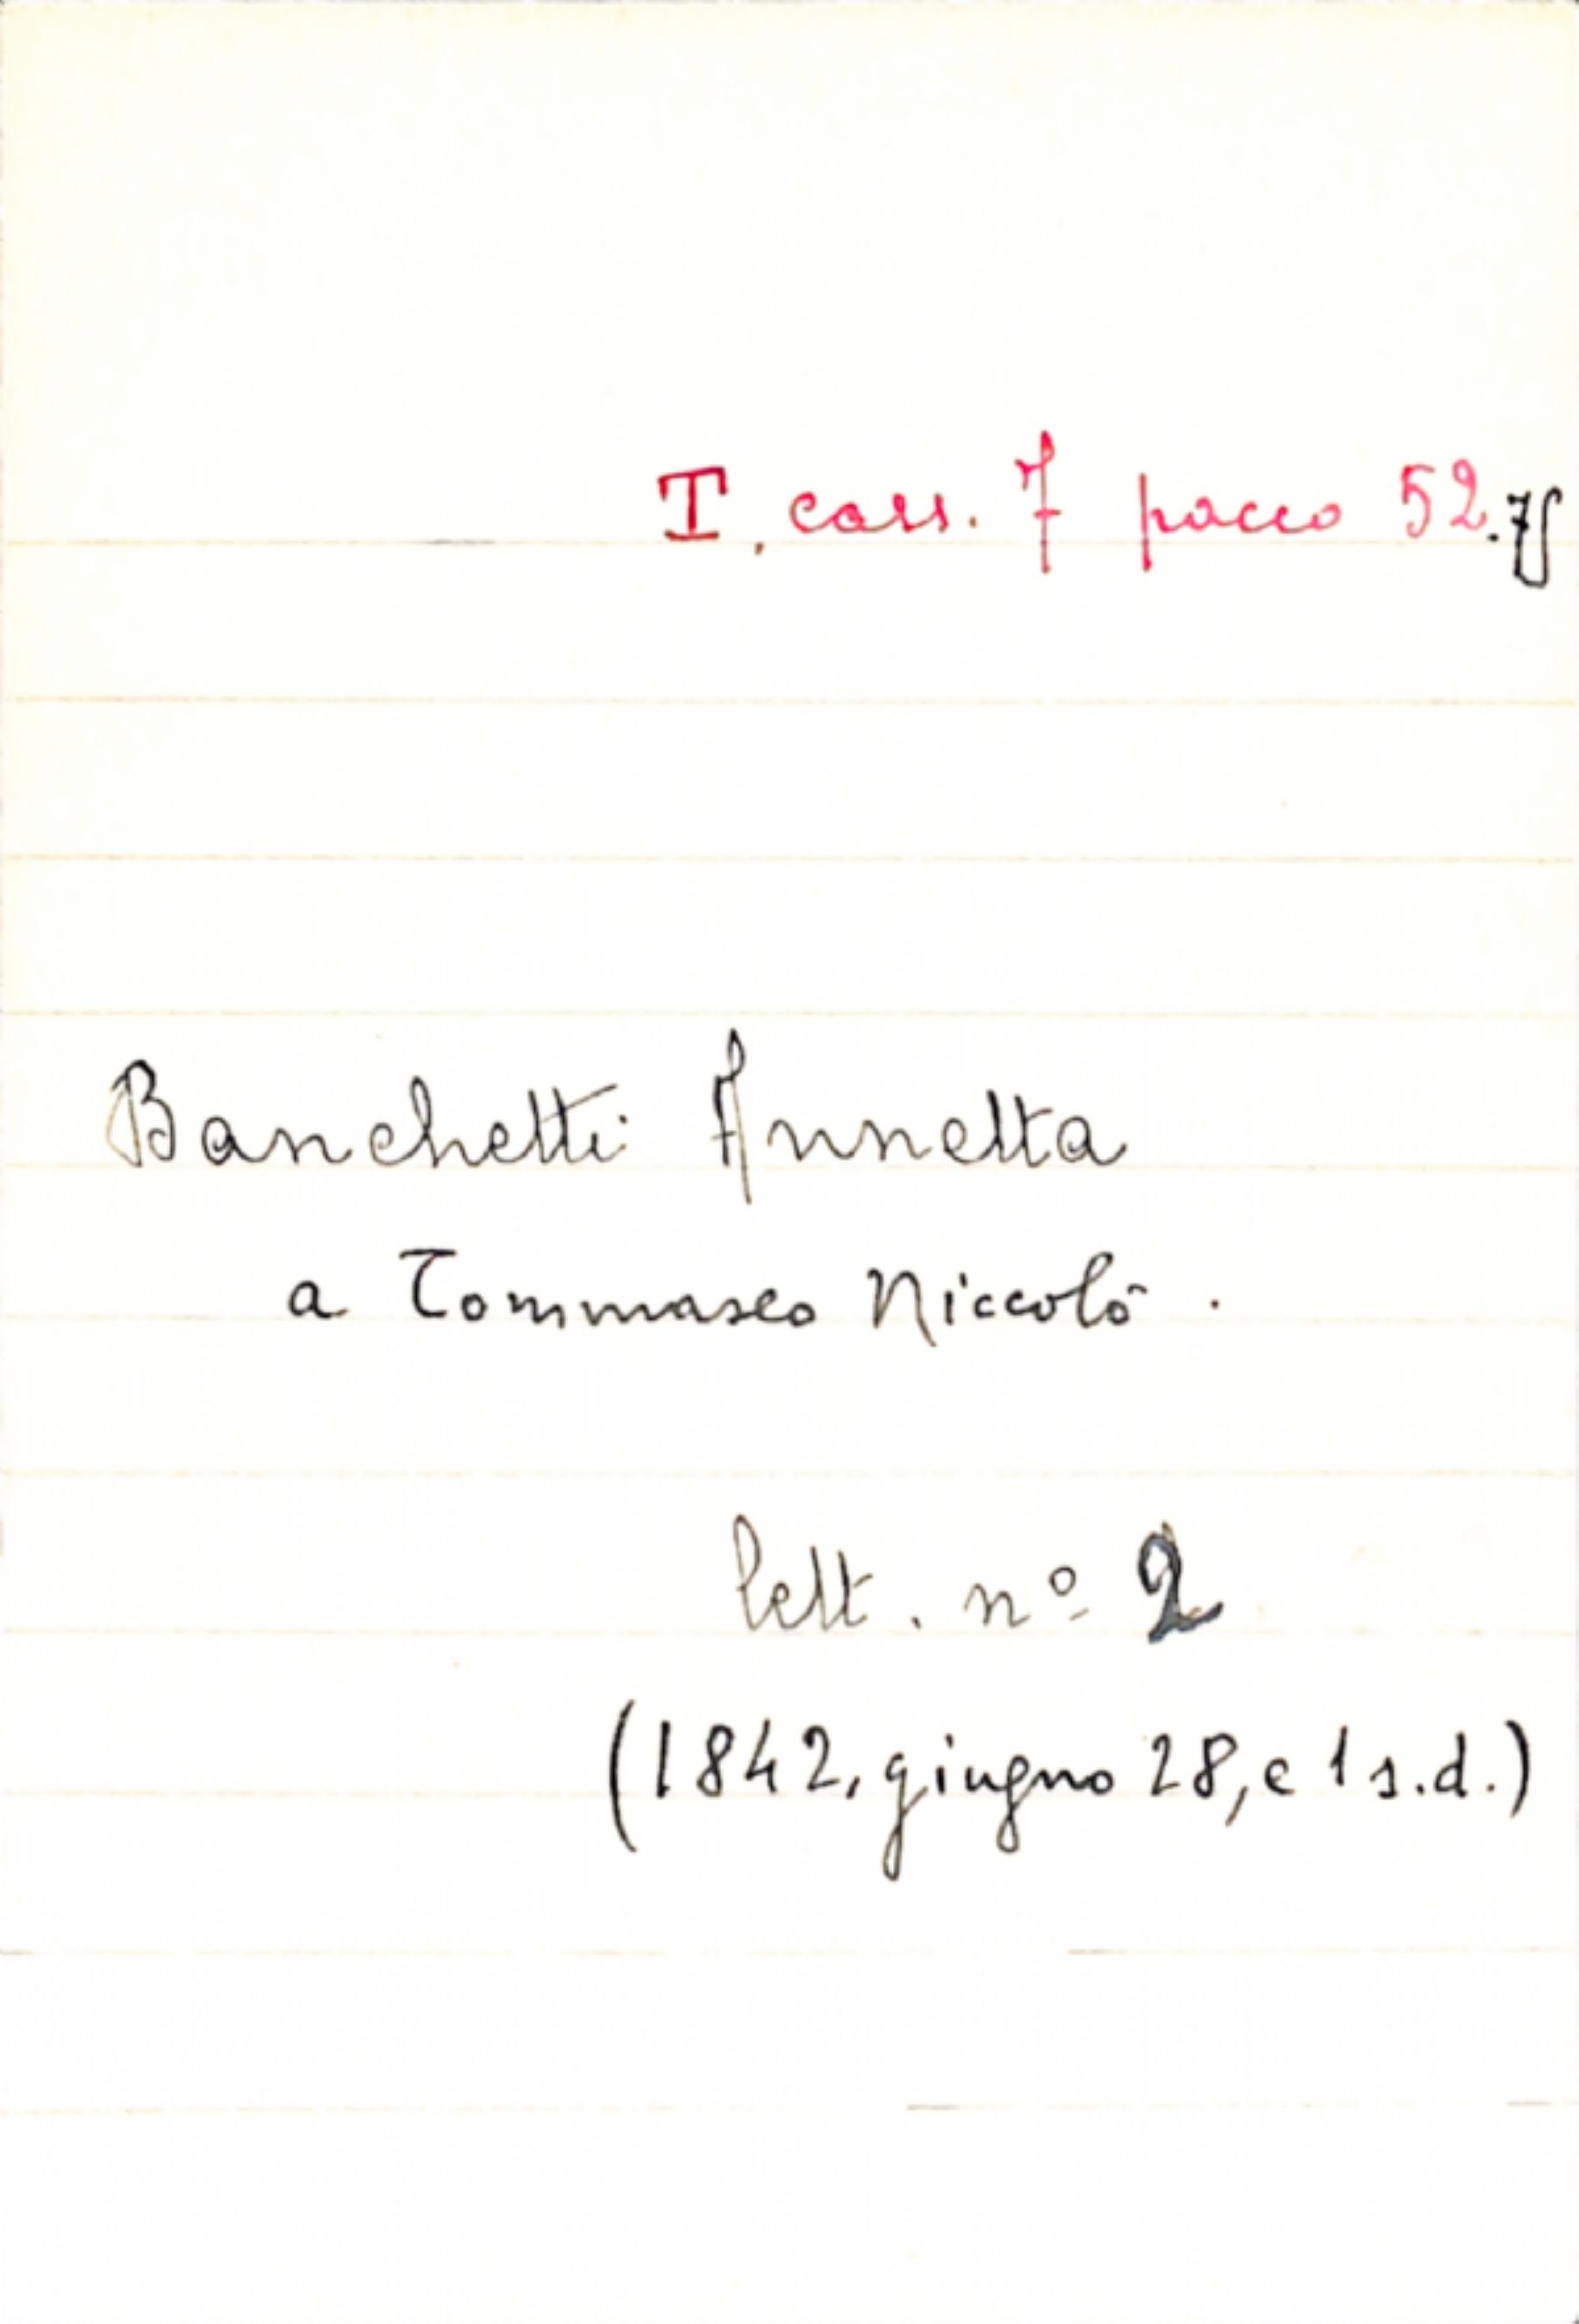 T. cass. 7 pacco 52.75
Banchetti Annetta
a Tommaseo Niccolò.
lett. nº 2
(1842, giugno 28, e 1 s.d.)